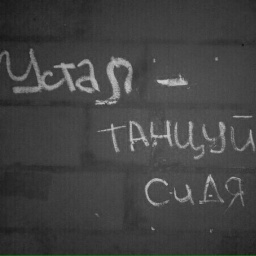 Устал -
танцуй
сидя